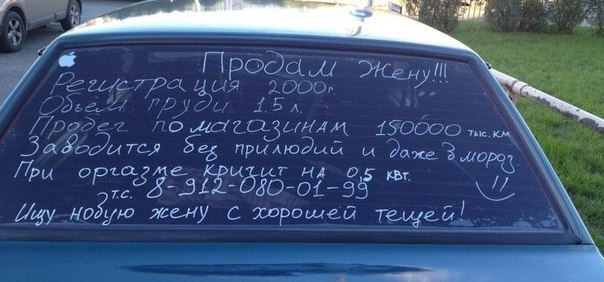 Продам жену!!!
Регистрация 2000г.
Объём груди 1.5 л.
Пробег по магазинам 150000 тыс. км
Заводится без прилюдий и даже в мороз
При оргазме кричит на 0,5 квт.
З т.с. 8-912-080-01-99
Ищу новую жену с хорошей тещей!